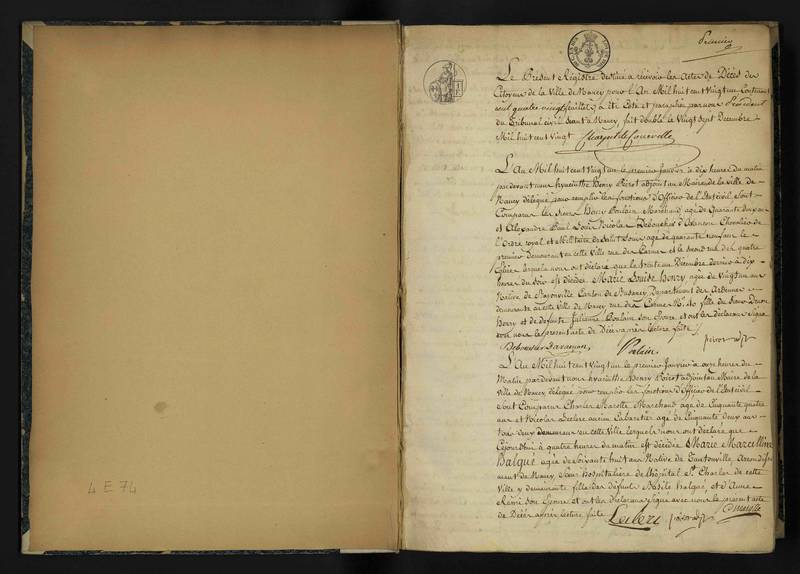 Premier
Le Présent Registre destiné a recevoir les Actes de Décès des
Citoyens de la Ville de Nancy pour l'An Mil huit cent vingt un Contenant
cent quatre vingt feuillets, a été Coté et paraphé par nous Président
du Tribunal civil séant à Nancy, fait double le Vingt Sept Décembre
Mil huit cent Vingt
L'An Mil huit cent vingt un le premier Janvier à dix heures du matin
pardevant nous hyacinthe Henry Poirot adjoint au Maire de la Ville de
Nancy délégué pour remplir les fonctions d'Officier de l'Etat civil, Sont
Comparus les Sieurs Henry Poulain Marchand agé de Quarante
et Alexandre Paul Louis Nicolas d'Avancon Chevalier de
l'Ordre royal et Militaire de Saint Louis agé de quarante neuf ans le
premier demeurant en cette Ville rue des Carmes et le second rue des quatre
Eglises lesquels nous ont déclaré que le trente un Décembre dernier à dix
heures du Soir est décédée Marie Louise Henry agée de Vingt un ans
Native de Bayonville Canton de Buzancy Département des Ardennes
demeurante en cette Ville de Nancy rue des Carmes No. 40 fille de
Henry et de défunte Julienne Poulain son Epouse et ont les déclarans Signé
avec nous le présent acte de Décès après lecture faite
Poulain poirot adjt
L'An Mil huit cent Vingt un le premier Janvier à onze heures du
Matin pardevant nous hyacinthe Henry Poirot adjoint au Maire de la
Ville de Nancy délégué pour remplir les fonctions d'Officier de l'Etat civil
Sont Comparus Charles Marotte Marchand agé de Cinquante quatre
ans et Nicolas Leclerc ancien Cabaretier agé de Cinquante deux ans
tous deux demeurant en cette Ville lesquels nous ont déclaré que
Cejourdhui à quatre heures du matin est décédée Marie Marcelline
Halqué agée de Soixante huit ans Native de Tantonville, Arrondisse
ment de Nancy, Soeur hospitalière de l'hôpital St Charles de cette
Ville y demeurante fille des défunts Basile halqué, et d'Anne
Rémi Son Epouse et ont les déclarans Signé avec nous le présent acte
de Décès après lecture faite Leclerc poirot adjt Marotte
4 E 74